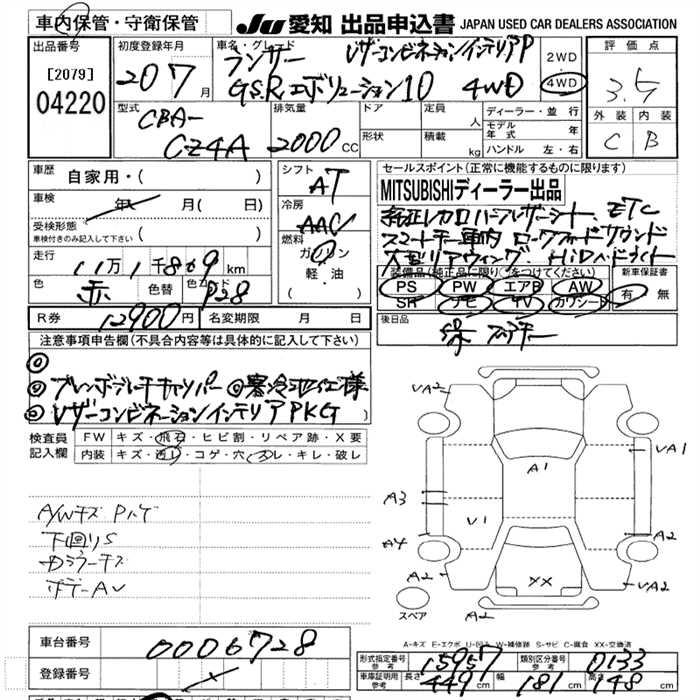 車内保管・守衛保管
JU 愛知 出品申込書 JAPAN USED CAR DEALERS ASSOCIATION
出品番号
[2079]
04220
初度登録年月
20 7月
車名・グレード
ランサー レザーコンビネーションインテリアP
GSR エボリューション10 4WD
2WD
4WD
評価点
3.5
外装 内装
C B
型式
CBA-
CZ4A
排気量
2000 CC
ドア
形状
定員 人
積載 kg
ディーラー・並行
モデル年式 年
ハンドル 左・右
車歴
自家用・( )
車検 年 月(日)
受検形態
車検付きのみ記入して下さい ( )
走行
11万1千869km
色 赤 色替 色コード P28
シフト
AT
冷房
AAC
燃料
ガソリン
軽・油
( )
セールスポイント(正常に機能するものに限ります)
MITSUBISHIディーラー出品
純正レカロハーフレザーシート、ETC
スマートキー車内 ロックフォードサウンド
大型リアウィング、HiDヘッドライト
装備品(純正品に限り○をつけてください)
PS PW エアB AW
SR ナビ TV カワシート
新車保証書
有 無
R券 12900円 名変期限 月 日
後日品
注意事項申告欄(不具合内容等は具体的に記入して下さい)
◎
◎ブレンボブレーキキャリパー ◎寒冷地仕様
◎レザーコンビネーションインテリアPKG
検査員記入欄
FW キズ・飛石・ヒビ割・リペア跡・X要
内装 キズ・汚レ・コゲ・穴・スレ・キレ・破レ
A/Wキズ
下回りS
ボデーAU
VA2
VA1
A1
A3
V1
A4
A2
A2
XX
VA2
A2
スペア
A-キズ E-エクボ U-凹ミ W-補修跡 S-サビ C-腐食 XX-交換済
車台番号
0006728
登録番号
形式指定番号 参考 15957
類別区分番号 参考 0133
車庫証明用 参考 長さ 449cm 幅 181cm 高さ 148cm